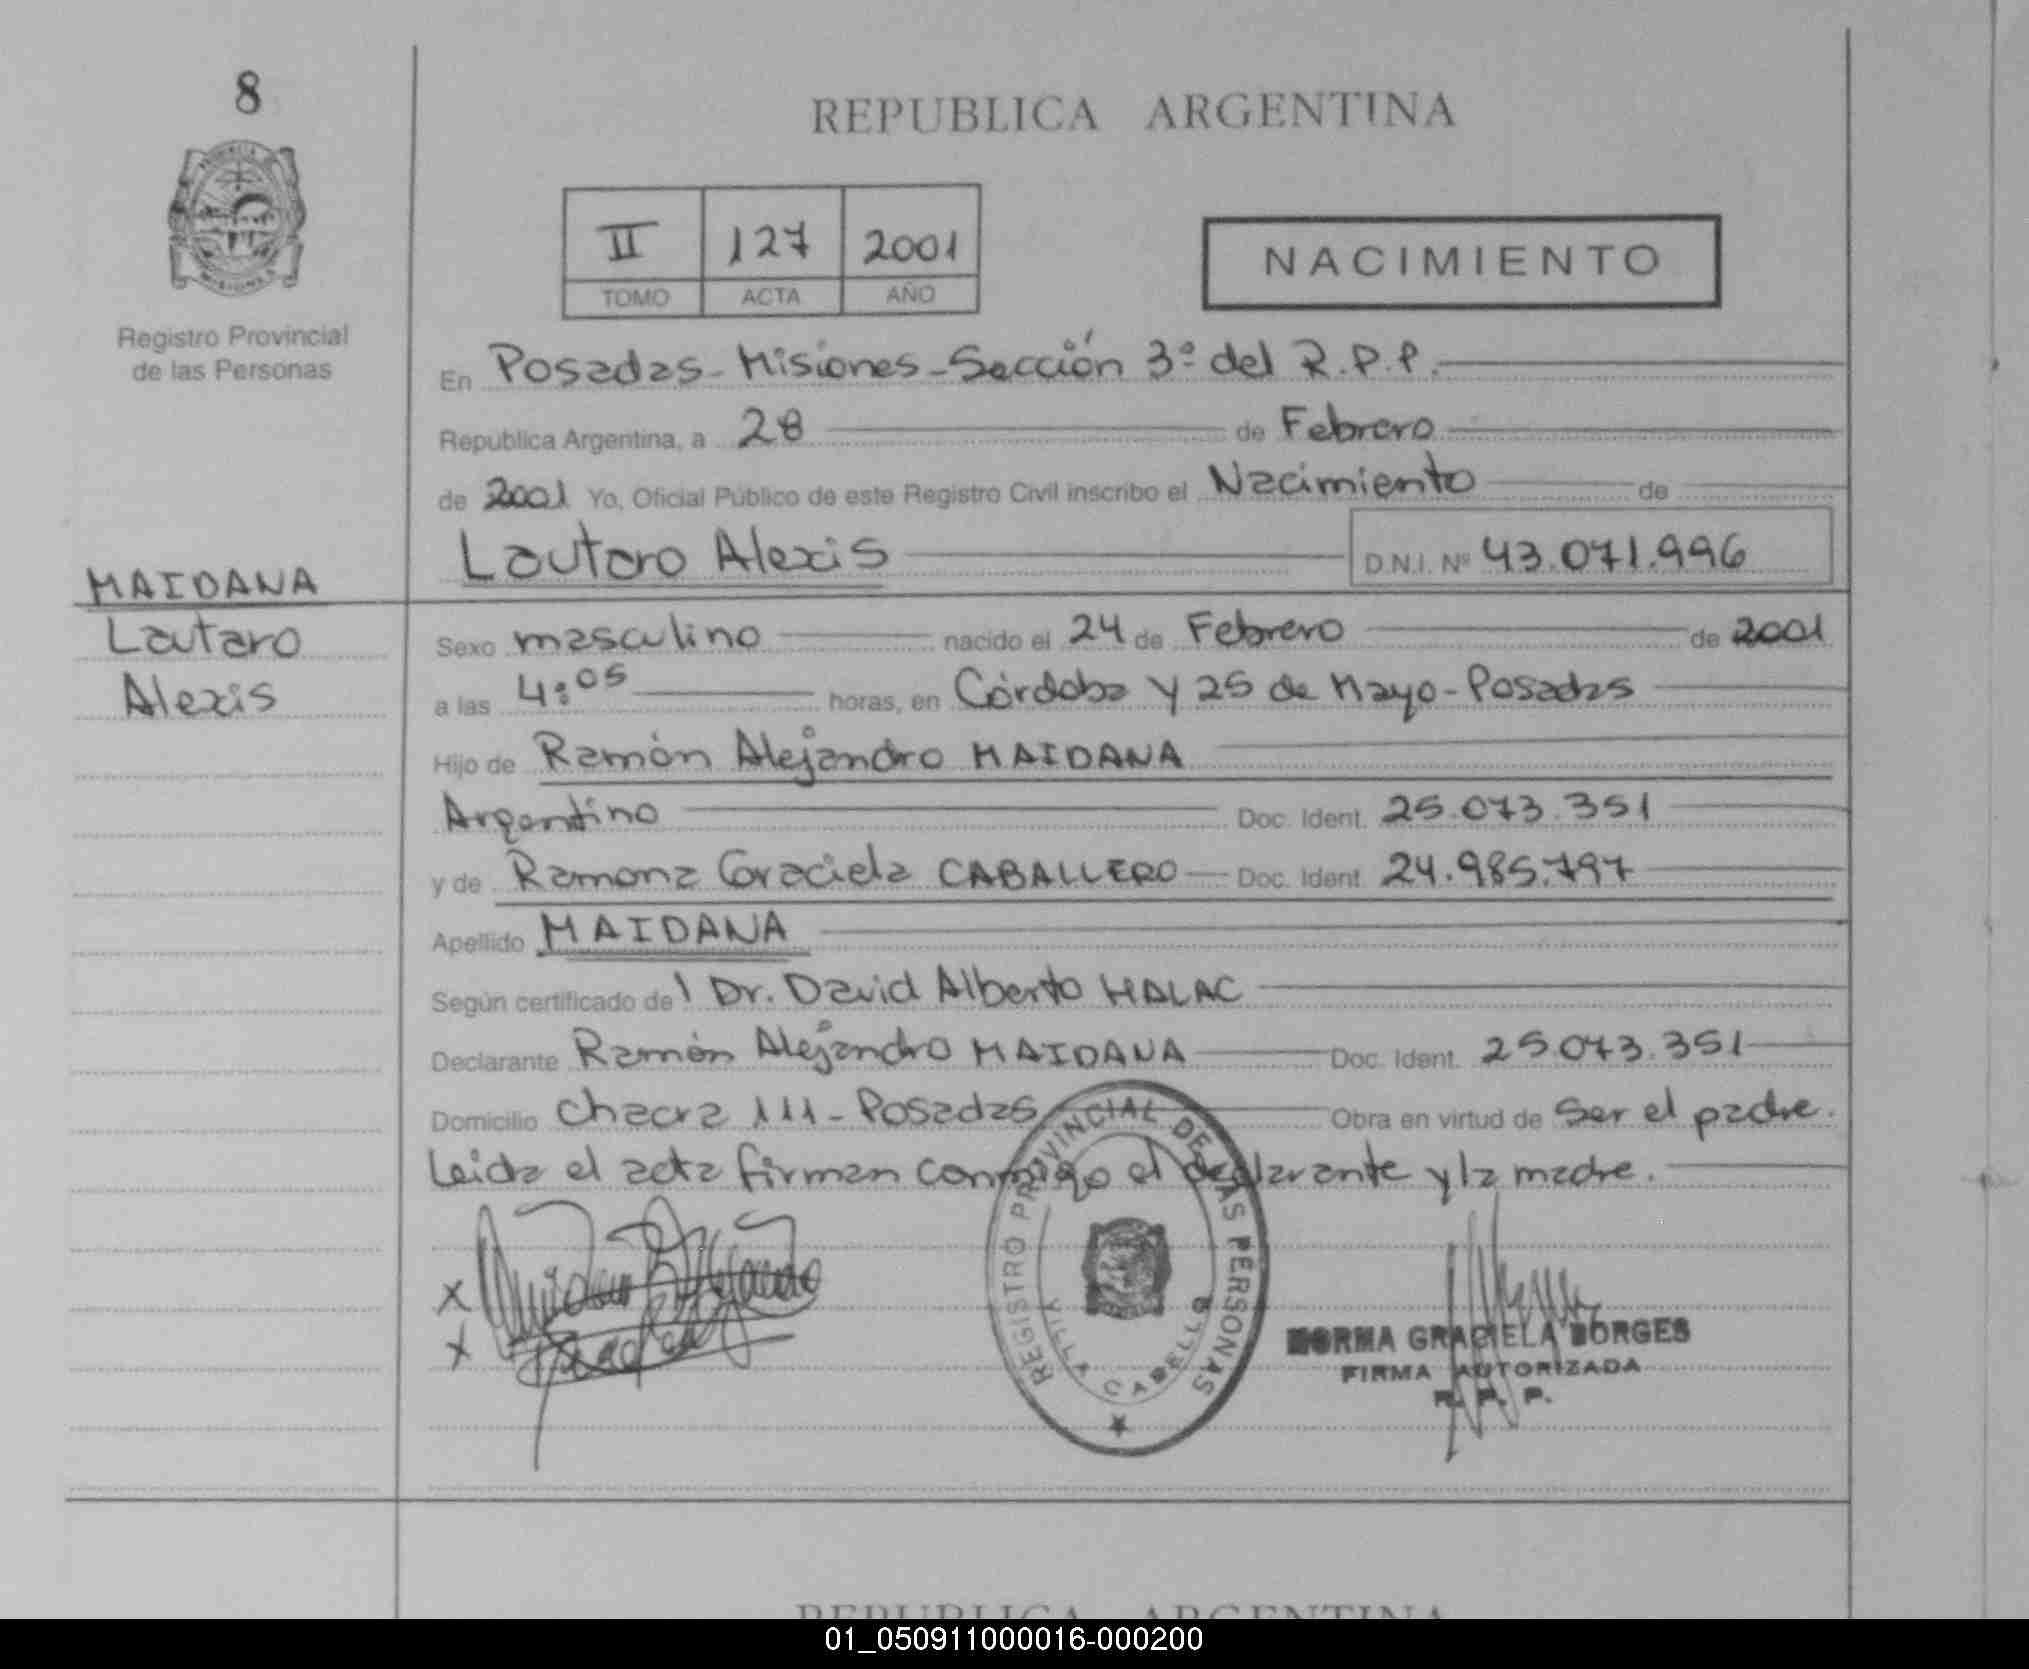 8
REPUBLICA ARGENTINA
PROVINCIA DE
MISIONES
Registro Provincial
de las Personas
II 127 2001
TOMO ACTA AÑO
NACIMIENTO
En Posadas - Misiones - Sección 3º del R.P.P.
República Argentina, a 28 de Febrero
de 2001 Yo, Oficial Público de este Registro Civil inscribo el Nacimiento de
Lautaro Alexis D.N.I. Nº 43.071.996
MAIDANA
Lautaro
Alexis
Sexo masculino nacido el 24 de Febrero de 2001
a las 4:05 horas, en Córdoba y 25 de Mayo - Posadas
Hijo de Ramón Alejandro MAIDANA
Argentino Doc. Ident. 25.073.351
y de Ramona Graciela CABALLERO Doc. Ident. 24.985.797
Apellido MAIDANA
Según certificado del Dr. David Alberto HALAC
Declarante Ramón Alejandro MAIDANA Doc. Ident. 25.073.351
Domicilio Chacra 111 - Posadas Obra en virtud de ser el padre.
Leida el acta firman conmigo el declarante y la madre.
REGISTRO PROVINCIAL DE LAS PERSONAS
VILLA CABELLO
x
x
NORMA GRACIELA BORGES
FIRMA AUTORIZADA
R. P. P.
REPUBLICA ARGENTINA
01_050911000016-000200